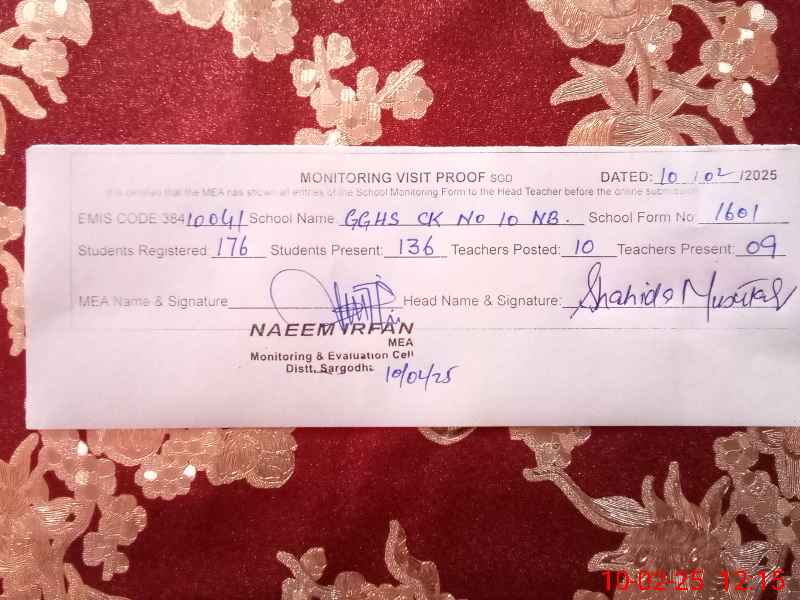 MONITORING VISIT PROOF SGD DATED: 10/02/2025
It is certified that the MEA has shown all entries of the School Monitoring Form to the Head Teacher before the online submission
EMIS CODE 38410041 School Name GGHS CK No 10 NB. School Form No 1601
Students Registered: 176 Students Present: 136 Teachers Posted: 10 Teachers Present: 09
MEA Name & Signature Head Name & Signature: Shahida
NAEEM IRFAN
MEA
Monitoring & Evaluation Cell
Distt, Sargodha
10/02/25
10-02-25 12:15